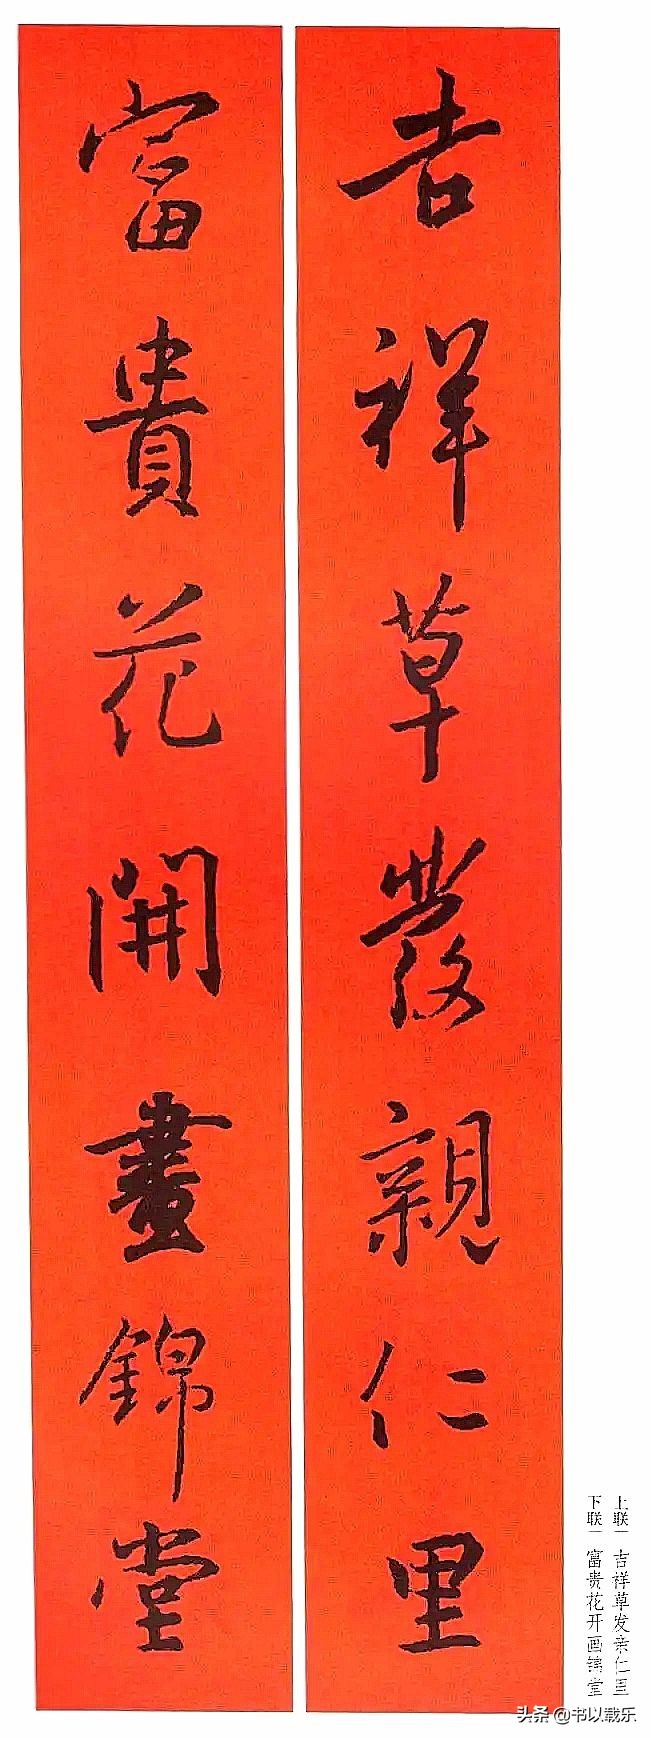 吉祥草發親仁里
富貴花開畫錦堂
上联｜吉祥草发亲仁里
下联｜富贵花开画锦堂
头条 @书以载乐